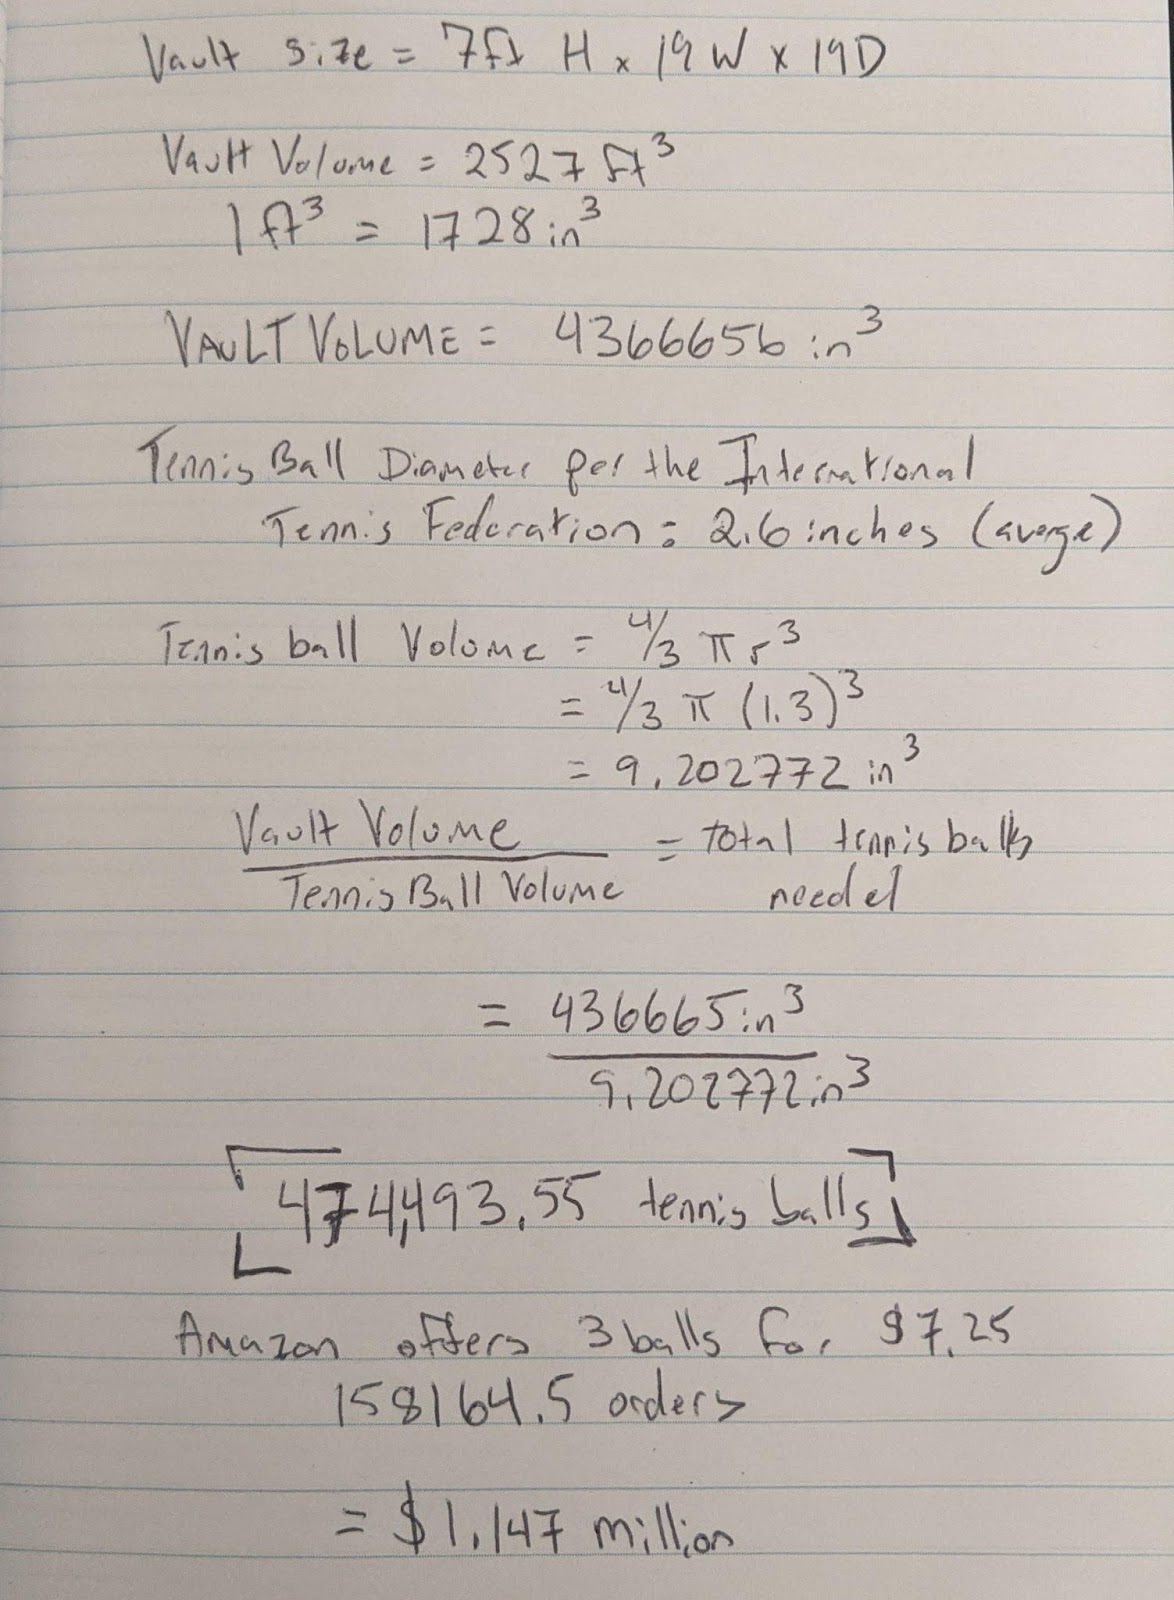 Vault Size = 7ft H x 19W x 19D
Vault Volume = 2527 ft³
1 ft³ = 1728 in³
VAULT VOLUME = 4366656 in³
Tennis Ball Diameter per the International
Tennis Federation = 2.6 inches (averge)
Tennis ball Volume = 4/3 π r³
= 4/3 π (1.3)³
= 9.202772 in³
Vault Volume
Tennis Ball Volume
= total tennis balls
needed
= 436665 in³
9.202772 in³
474,493.55 tennis balls
Amazon offers 3 balls for $7.25
158164.5 orders
= $1.147 million